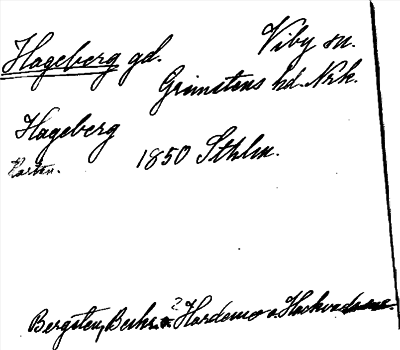 Hageberg gd. Viby sn.
Grimstens hd. Nrk.
Hageberg
Kartan. 1850 Sthlm.
Bergsten, Beskr. ö. Hardemo o.